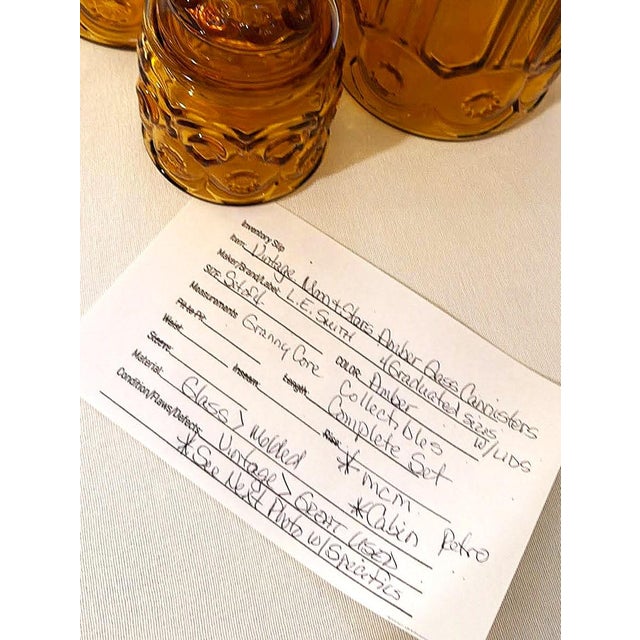 Inventory Slip
Item: Vintage Moon + Stars Amber Glass Cannisters
Maker/Brand/Label: L.E. SMITH // Graduated Sizes w/ LIDS
SIZE: Set of 4 COLOR: Amber
Measurements Granny Core Collectibles
Pit to Pit Complete Set
Waist: Length: Rise:
Sleeve: Inseam: * MCM
Material: Glass > Molded * Cabin Retro
Condition/Flaws/Defects: Vintage > GREAT USED
* See Next Photo w/ Specifics